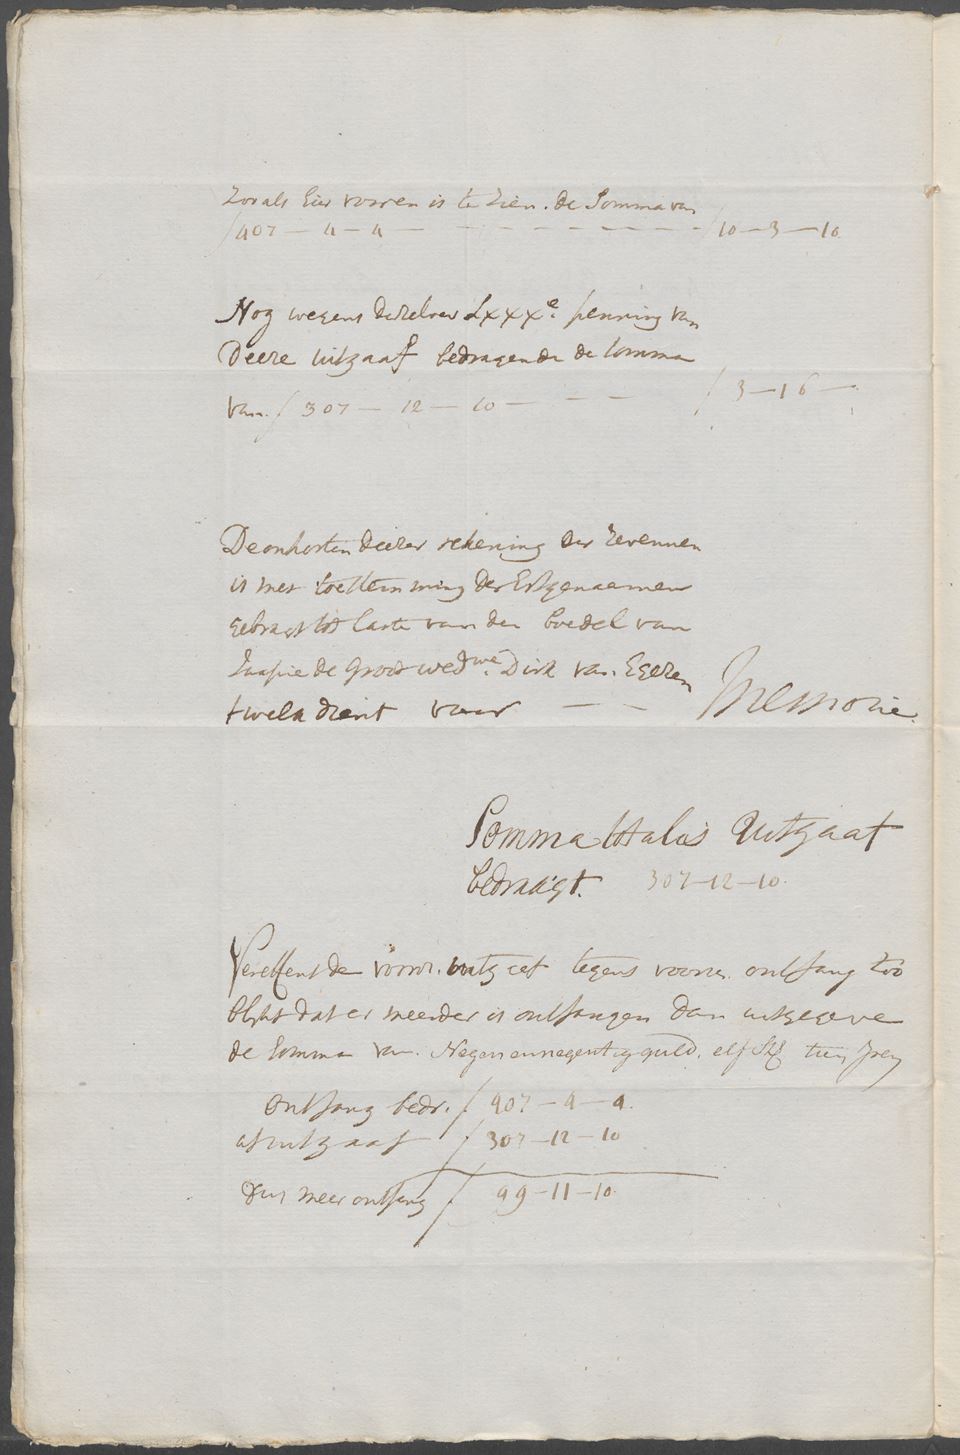 Zoo als hier vooren is te zien. de Somma van
ƒ 407 - 4 - 4 - - - - - - - - - ƒ 10 - 3 - 10
Nog wegens dezelver Lxxx.e penning van
Deeze uitgaaf bedragende de somma
van ƒ 307 - 12 - 10 - - - ƒ 3 - 16 -
De onkosten deezer rekening der zevennen
is met toestemming der Erfgenaemen
gebragt tot laste van den boedel van
de Groot wed.we Dirk van Egeren
twelk dient voor - - Memorie.
Somma totalis Uitgaaf
bedraagt. 307 - 12 - 10.
Vereffent de voorsz. uitgaef tegens voorsz. ontfang zoo
blijkt dat er meerder is ontfangen dan uitgegeve
de somma van Negenennegentig guld. elf St. tien pen
Ontfang bedr. ƒ 407 - 4 - 4.
uitgaaf ƒ 307 - 12 - 10
Dus meer ontfang ƒ 99 - 11 - 10.